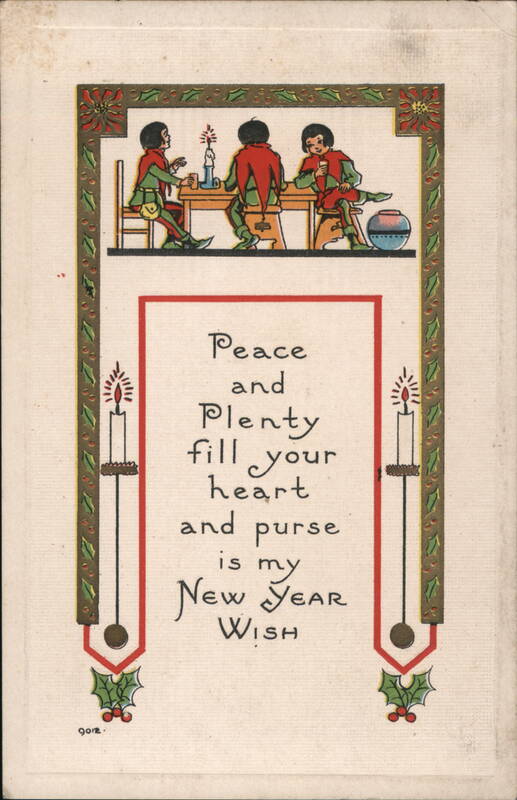 Peace
and
Plenty
fill your
heart
and purse
is my
New Year
Wish
9012.